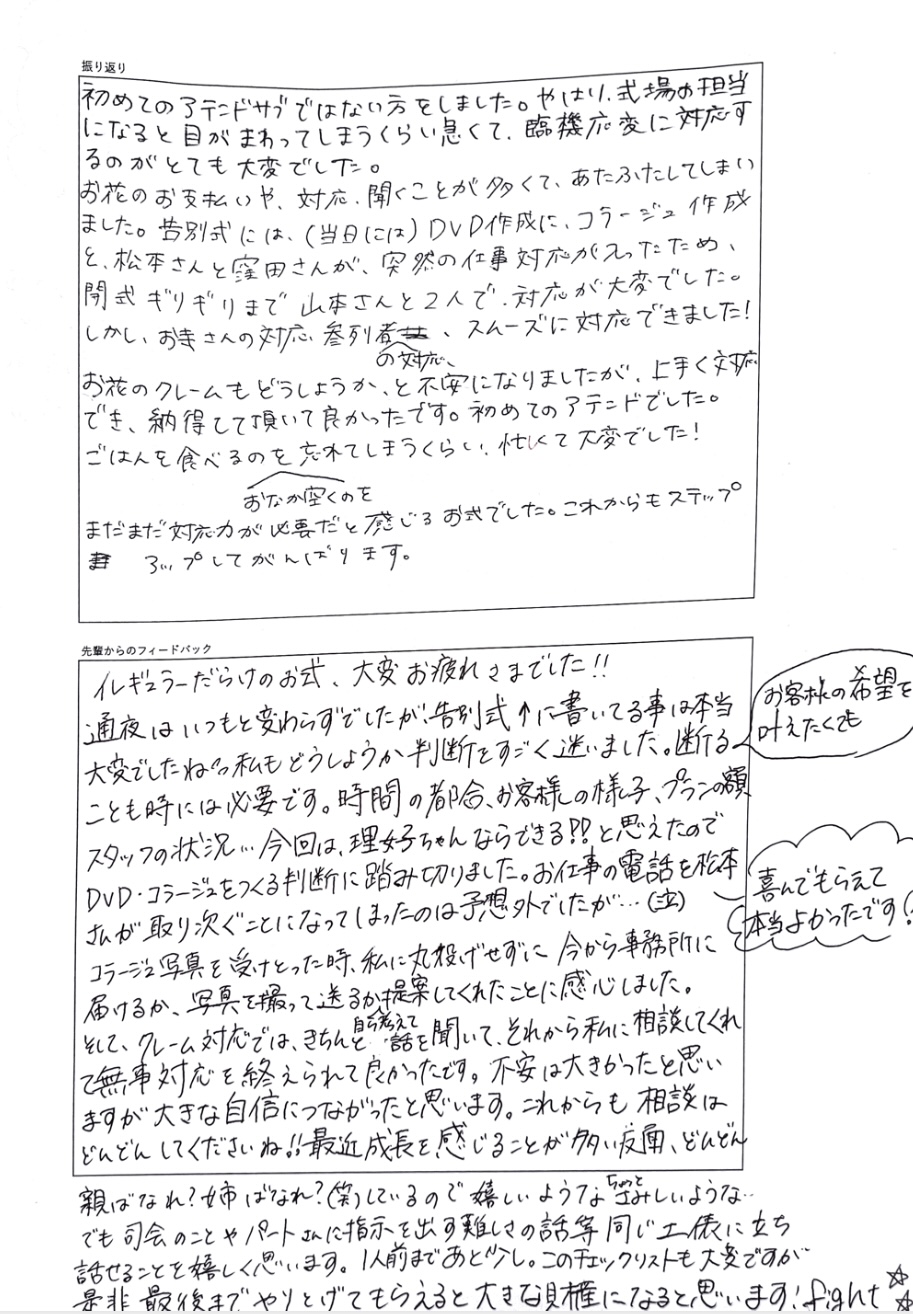 振り返り
初めてのアテンドサブではない方をしました。やはり、式場の担当
になると目がまわってしまうくらい忙くて、臨機応変に対応す
るのがとても大変でした。
お花のお支払いや、対応、聞くことが多くて、あたふたしてしまい
ました。告別式には、(当日には)DVD作成に、コラージュ作成
と、松本さんと窪田さんが、突然の仕事対応が入ったため、
閉式ギリギリまで山本さんと2人で、対応が大変でした。
しかし、お寺さんの対応、参列者の対応、スムーズに対応できました!
お花のクレームもどうしようか、と不安になりましたが、上手く対応
でき、納得して頂いて良かったです。初めてのアテンドでした。
ごはんを食べるのを忘れてしまうくらい、忙しくて大変でした!
おなか空くのを
まだまだ対応力が必要だと感じるお式でした。これからもステップ
アップしてがんばります。
先輩からのフィードバック
イレギュラーだらけのお式、大変お疲れさまでした!!
通夜はいつもと変わらずでしたが、告別式↑に書いてる事は本当
大変でしたね 私もどうしようか判断をすごく迷いました。断る
お客様の希望を
叶えたくても
ことも時には必要です。時間の都合、お客様の様子、プランの額
スタッフの状況…今回は、理女子ちゃんならできる!!と思えたので
DVD・コラージュをつくる判断に踏み切りました。お仕事の電話を松本
さんが取り次ぐことになってしまったのは予想外でしたが…(泣)
喜んでもらえて
本当よかったです!
コラージュ写真を受けとった時、私に丸投げせずに今から事務所に
届けるか、写真を撮って送るか提案してくれたことに感心しました。
そして、クレーム対応では、きちんと自ら考えて話を聞いて、それから私に相談してくれ
て無事対応を終えられて良かったです。不安は大きかったと思い
ますが大きな自信につながったと思います。これからも相談は
どんどんしてくださいね!!最近成長を感じることが多い反面、どんどん
親ばなれ?姉ばなれ?(笑)しているので嬉しいようなちょっとさみしいような…
でも司会のことやパートさんに指示を出す難しさの話等同じ土俵に立ち
話せることを嬉しく思います。1人前まであと少し。このチェックリストも大変ですが
是非最後までやりとげてもらえると大きな財権になると思います!fight☆☆